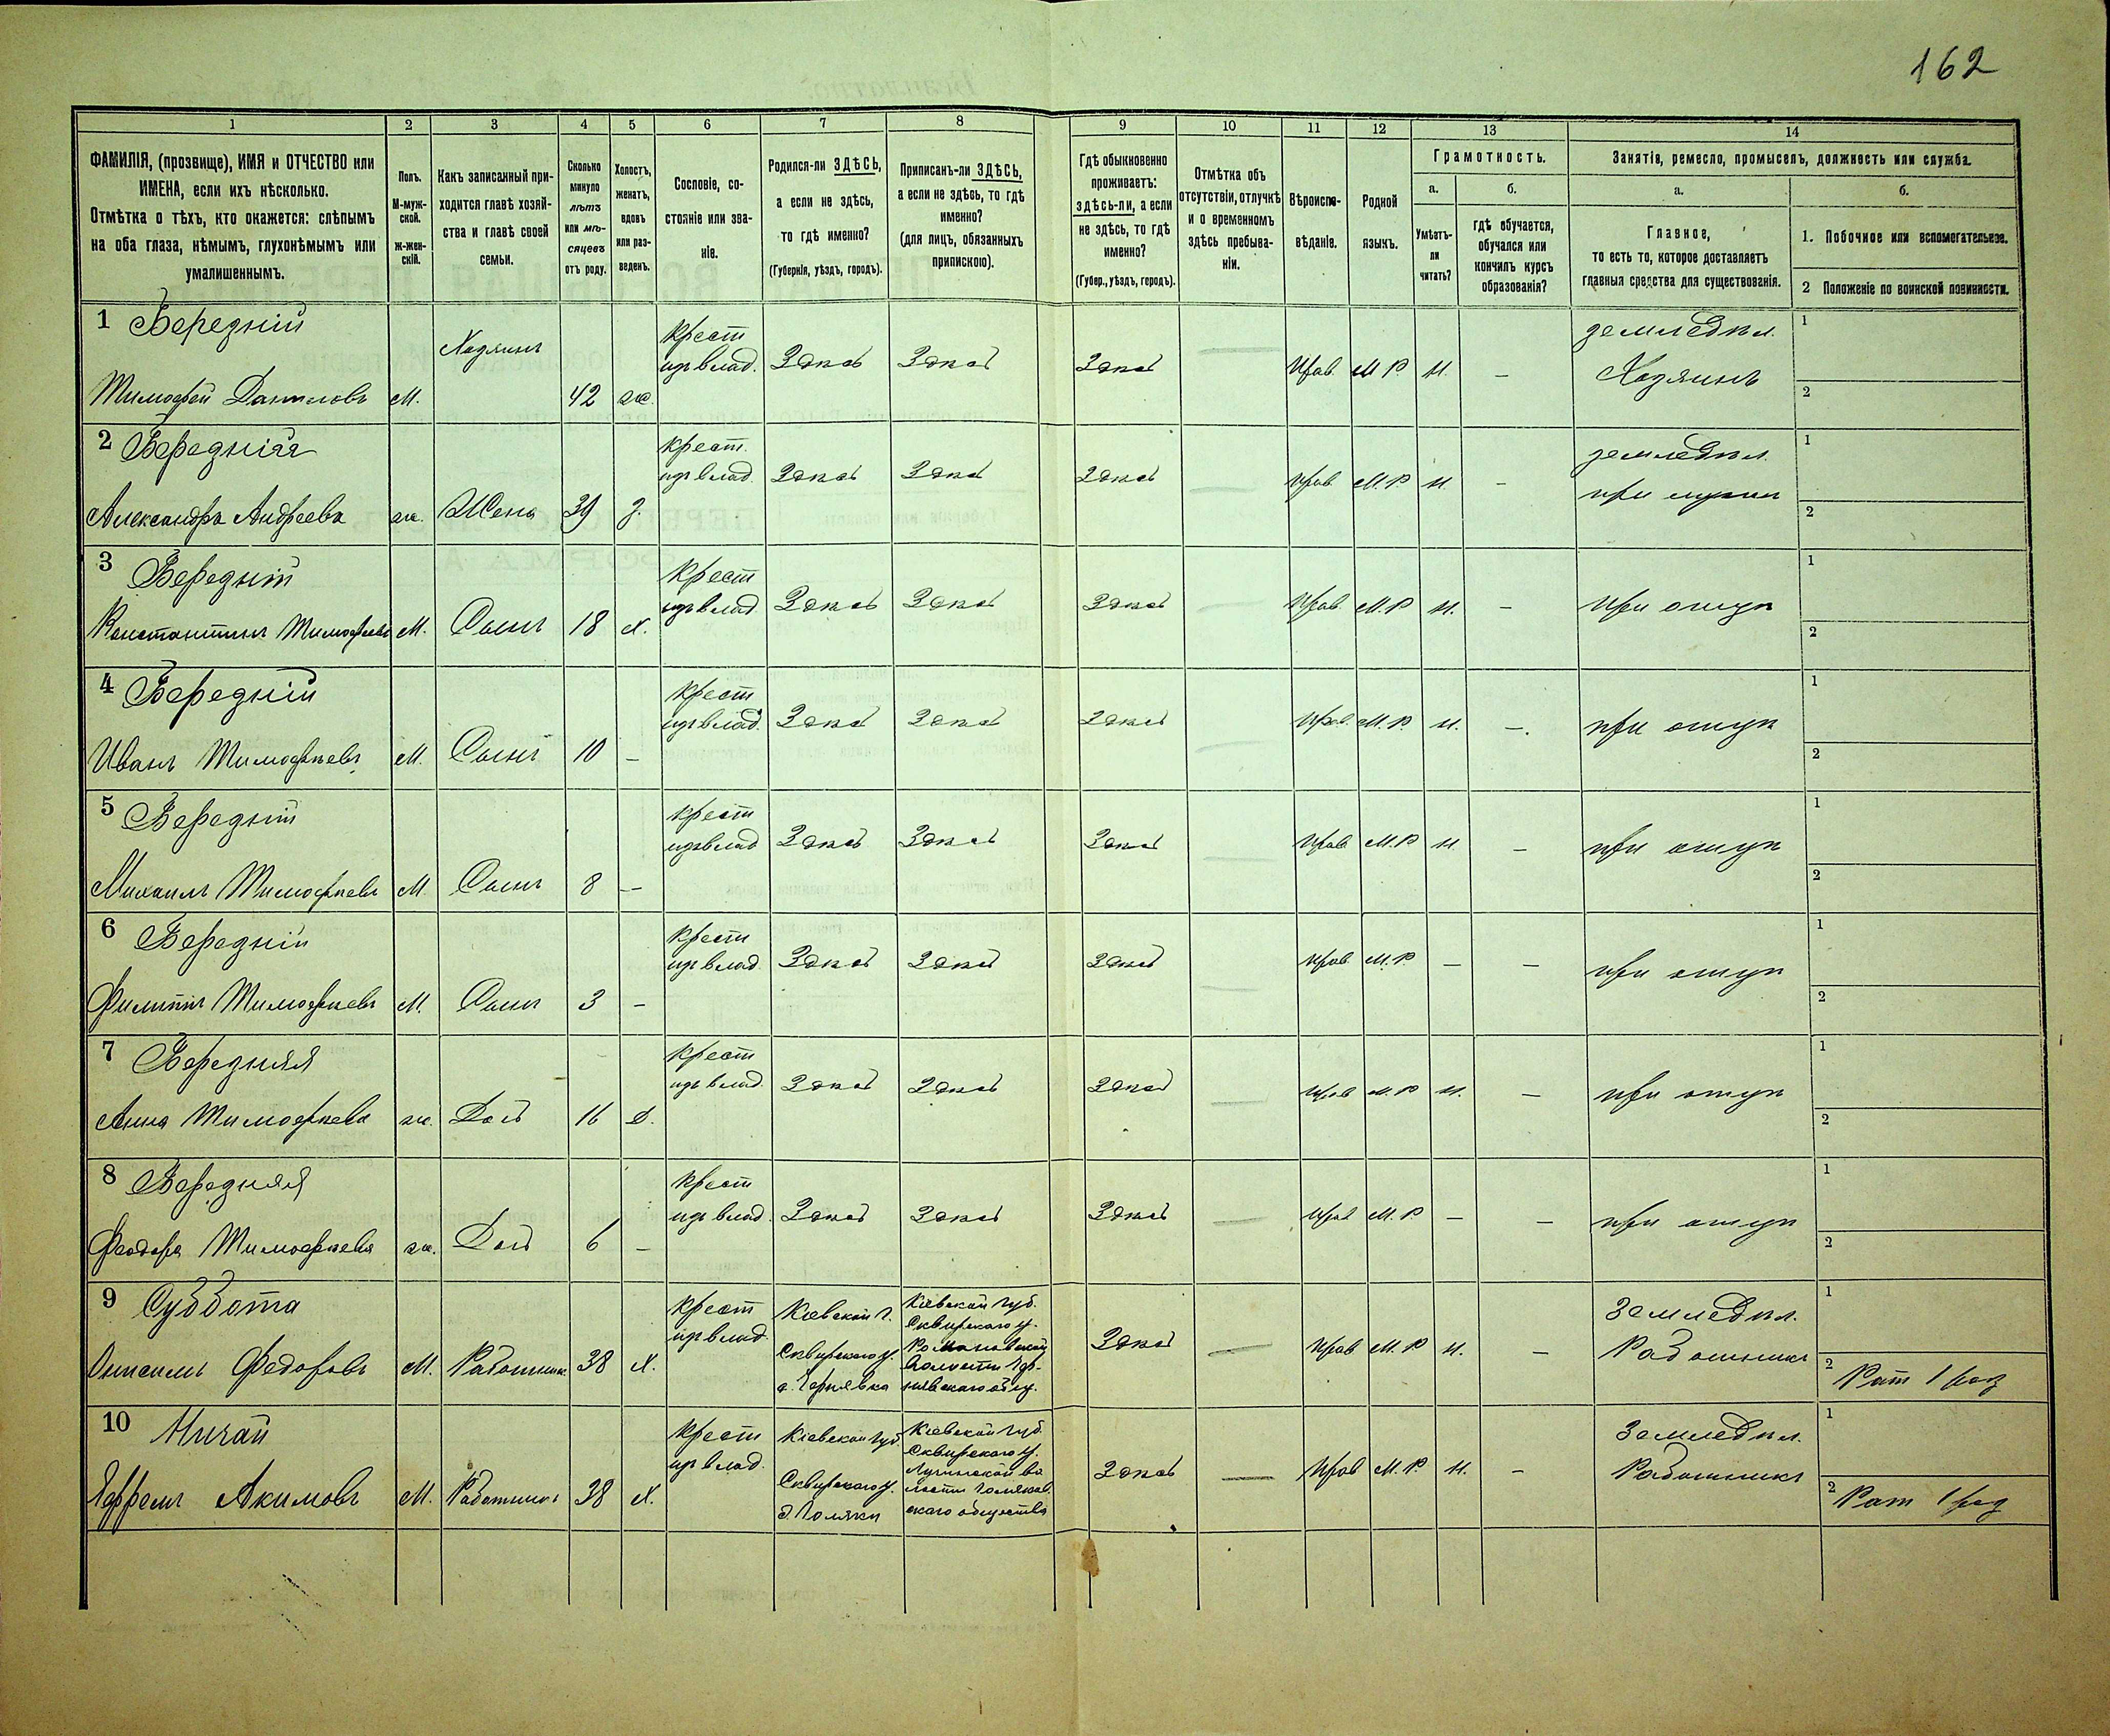 162
1 2 3 4 5 6 7 8 9 10 11 12 13 14
ФАМИЛІЯ, (прозвище), ИМЯ и ОТЧЕСТВО или
ИМЕНА, если ихъ нѣсколько.
Отмѣтка о тѣхъ, кто окажется: слѣпымъ
на оба глаза, нѣмымъ, глухонѣмымъ или
умалишеннымъ.
Полъ.
М-муж-
ской.
Ж-жен-
скій.
Какъ записанный при-
ходится главѣ хозяй-
ства и главѣ своей
семьи.
Сколько
минуло
лѣтъ
или мѣ-
сяцевъ
отъ роду.
Холостъ,
женатъ,
вдовъ
или раз-
веденъ.
Сословіе, со-
стояніе или зва-
ніе.
Родился-ли ЗДѢСЬ,
а если не здѣсь,
то гдѣ именно?
(Губернія, уѣздъ, городъ).
Приписанъ-ли ЗДѢСЬ,
а если не здѣсь, то гдѣ
именно?
(для лицъ, обязанныхъ
припискою).
Гдѣ обыкновенно
проживаетъ:
здѣсь-ли, а если
не здѣсь, то гдѣ
именно?
(Губер., уѣздъ, городъ).
Отмѣтка объ
отсутствіи, отлучкѣ
и о временномъ
здѣсь пребыва-
ніи.
Вѣроиспо-
вѣданіе.
Родной
языкъ.
Грамотность.
а.
Умѣетъ-
ли
читать?
б.
гдѣ обучается,
обучался или
кончилъ курсъ
образованія?
Занятіе, ремесло, промыселъ, должность или служба.
а.
Главное,
то есть то, которое доставляетъ
главныя средства для существованія.
б.
1. Побочное или вспомогательное.
2 Положеніе по воинской повинности.
1 Бередній
Тимофей Даниловъ М. Хозяинъ 42 ж.
крест
изъ влад. Здѣсь Здѣсь Здѣсь — Прав. М.Р. Н. —
земледѣл.
Хозяинъ
1
2
2 Бередняя
Александра Андреева ж. Жена 39 З.
крест.
изъ влад. Здѣсь Здѣсь Здѣсь — Прав М.Р. Н. —
земледѣл.
при мужѣ
1
2
3 Бередній
Константинъ Тимофеевъ М. Сынъ 18 Х.
крест
изъ влад. Здѣсь Здѣсь Здѣсь — Прав М.Р. Н. —
при отцѣ
1
2
4 Бередній
Иванъ Тимофѣевъ М. Сынъ 10 —
крест
изъ влад. Здѣсь Здѣсь Здѣсь — Прав. М.Р. Н. —.
при отцѣ
1
2
5 Бередній
Михаилъ Тимофѣевъ М. Сынъ 8 —
крест
изъ влад Здѣсь Здѣсь Здѣсь — Прав М.Р. Н. —
при отцѣ
1
2
6 Бередній
Филиппъ Тимофѣевъ М. Сынъ 3 —
крест
изъ влад. Здѣсь Здѣсь Здѣсь — Прав. М.Р. — —
при отцѣ
1
2
7 Бередняя
Анна Тимофѣева ж. Дочь 16 Д.
крест
изъ влад. Здѣсь Здѣсь Здѣсь — Прав М.Р. Н. —
при отцѣ
1
2
8 Бередняя
Феодора Тимофѣева ж. Дочь 6 —
крест
изъ влад. Здѣсь Здѣсь Здѣсь — Прав М.Р. — —
при отцѣ
1
2
9 Суббота
Онисимъ Федоровъ М. Работникъ 38 Х.
крест
изъ влад.
Кіевской г.
Сквирскаго у.
с. Чернявка
Кіевской губ.
Сквирскаго у.
Романовской
волости Чер-
нявскаго общ.
Здѣсь — Прав М.Р. Н. —
Земледѣл.
Работникъ
1
2 Рат 1 раз
10 Ничай
Ефремъ Акимовъ М. Работникъ 38 Х.
крест
изъ влад.
Кіевской губ.
Сквирскаго у.
д. Поляки
Кіевской губ.
Сквирскаго у.
во
лости
скаго общества
Здѣсь — Прав М.Р. Н. —
Земледѣл.
Работникъ
1
2 Рат 1 раз